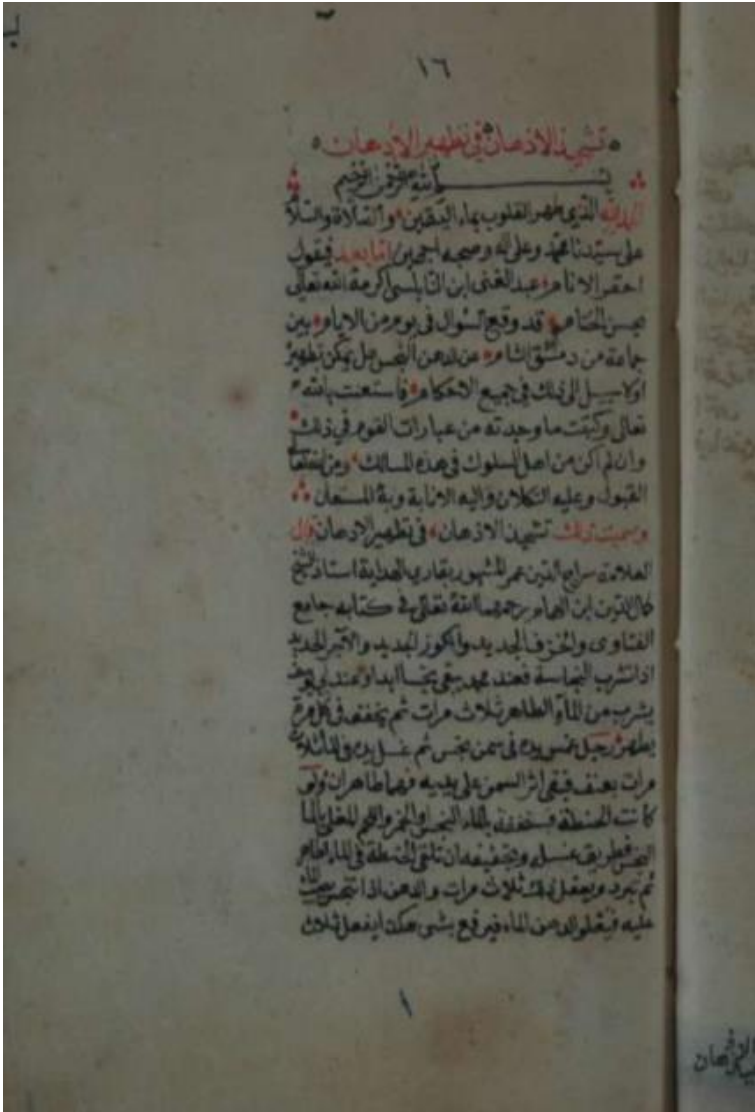 ١٦
تشحيذ الاذهان في تطهير الادهان
بسم الله الرحمن الرحيم
الحمد لله الذي طهر القلوب بماء اليقين والصلاة والسلام
على سيدنا محمد وعلى اله وصحبه اجمعين اما بعد فيقول
احقر الانام عبد الغنى ابن النابلسى اكرمه الله تعالى
بحسن الختام قد وقع السوال في يوم من الايام بين
جماعة من دمشق الشام عن الدهن النجس هل يمكن تطهيره
او لا سبيل الى ذلك في جميع الاحكام فاستعنت بالله
تعالى وكتبت ما وجدته من عبارات القوم في ذلك
وان لم اكن من اهل السلوك في هذه المسالك ومن الله تعالى
القبول وعليه التكلان واليه الانابة وبه المستعان
وسميت ذلك تشحيذ الاذهان في تطهير الادهان قال
العلامة سراج الدين عمر المشهور بقارى الهداية استاذ الشيخ
كمال الدين ابن الهمام رحمهما الله تعالى في كتابه جامع
الفتاوى والخزف الجديد والكوز الجديد والآجر الجديد
اذا تشرب النجاسة فعند محمد يبقى نجسا ابدا وعند ابى يوسف
يشرب من الماء الطاهر ثلاث مرات ثم يجفف في كل مرة
يطهر رجل غمس يده في سمن نجس ثم غسل يده في الماء ثلاث
مرات بعنف فبقى اثر السمن على يديه فهما طاهران ولو
كانت الحنطة بالماء النجس والخبز واللحم المغلى بالماء
النجس فطريق غسله وتجفيفه ان تلقى الحنطة في الماء الطاهر
ثم تبرد ويفعل ذلك ثلاث مرات والدهن اذا تنجس يصب الماء
عليه فيعلو الدهن الماء فيرفع بشى هكذا يفعل ثلاث
١